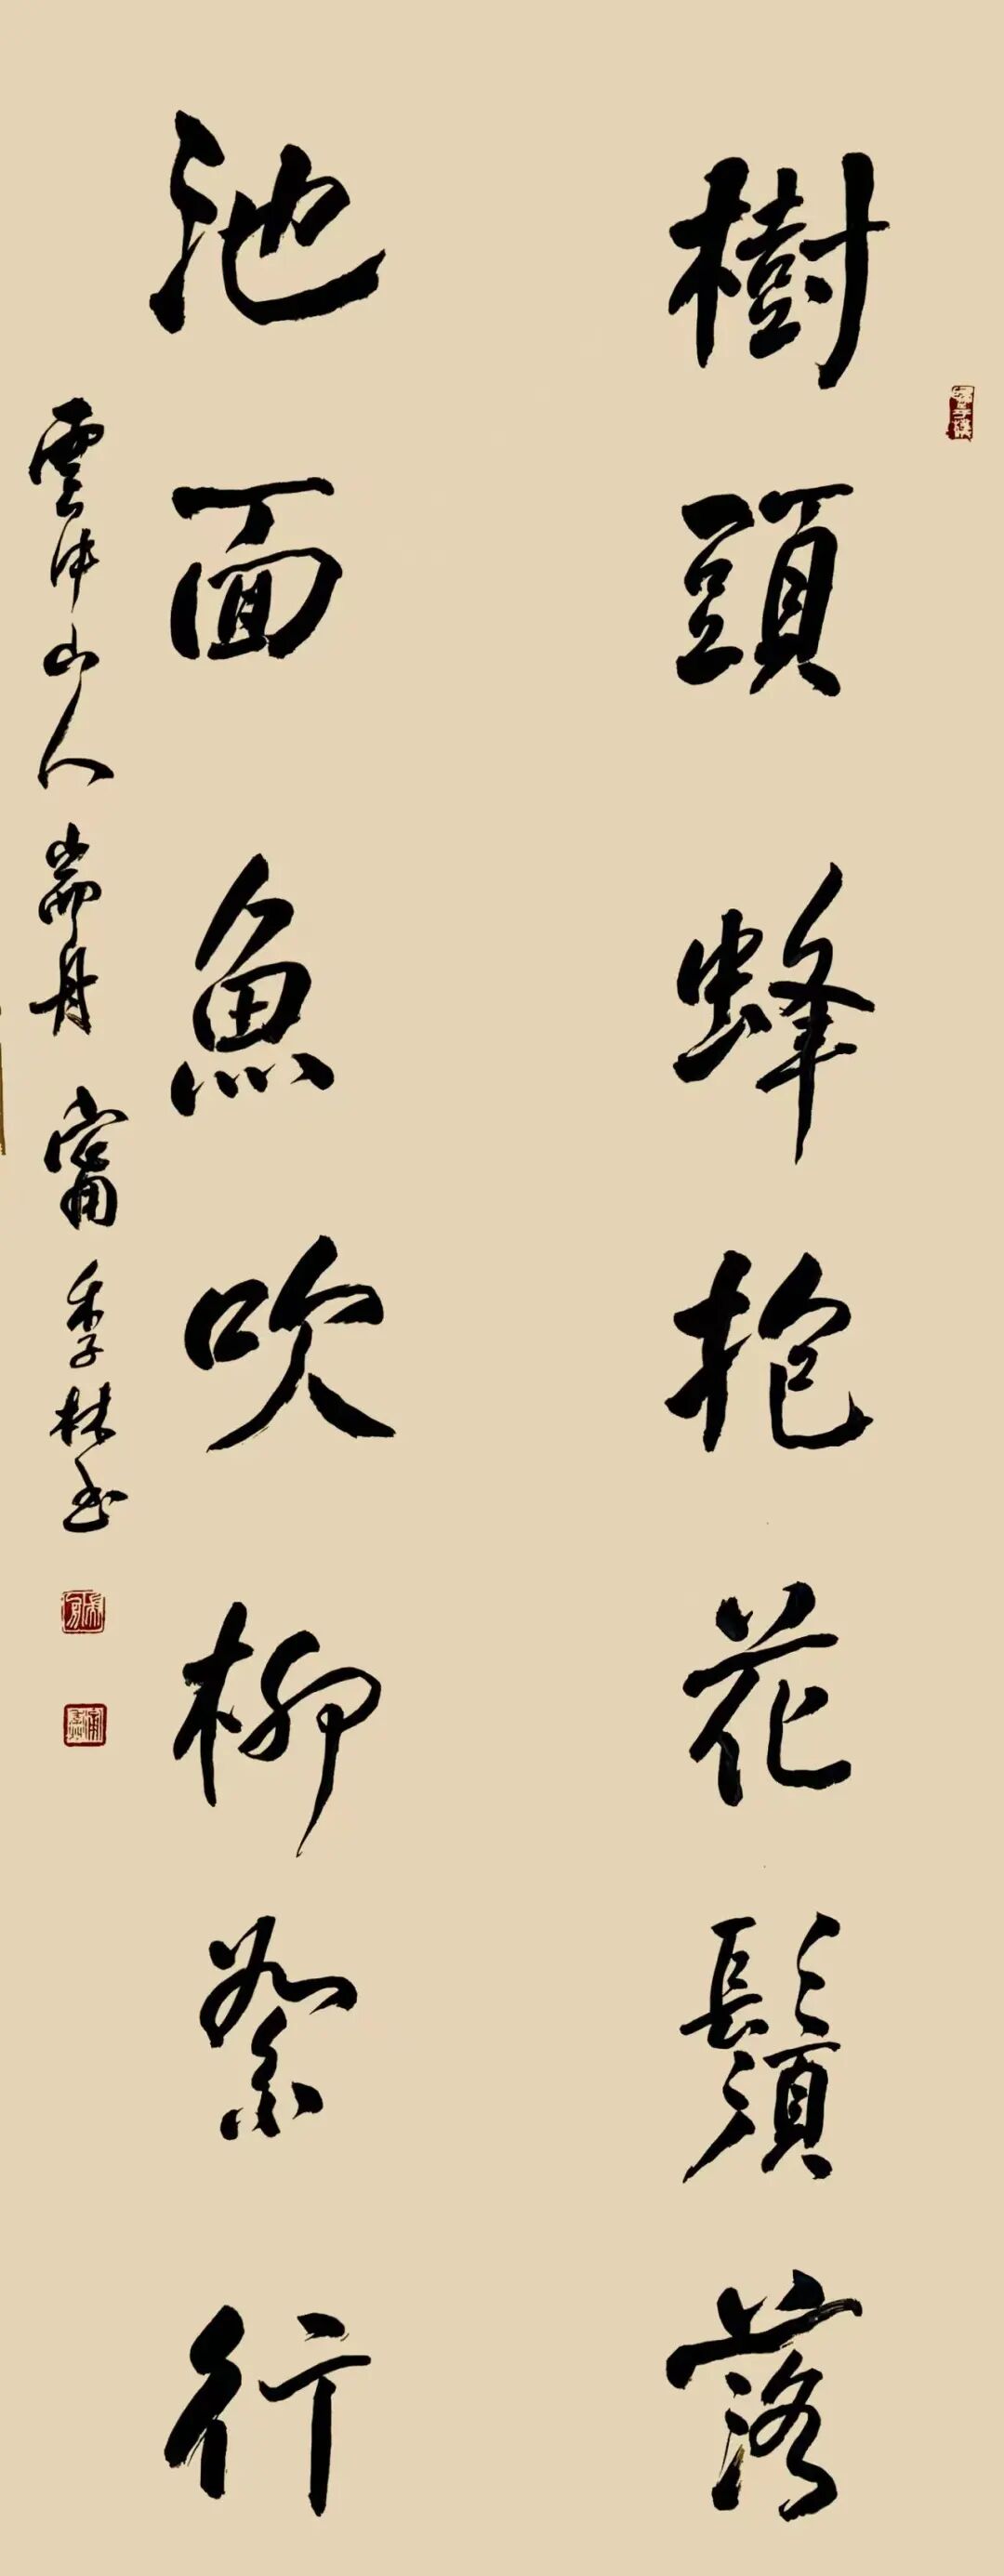 樹頭蜂抱花鬚落
池面魚吹柳絮行
雲沖山人 耑丹 甯季林书